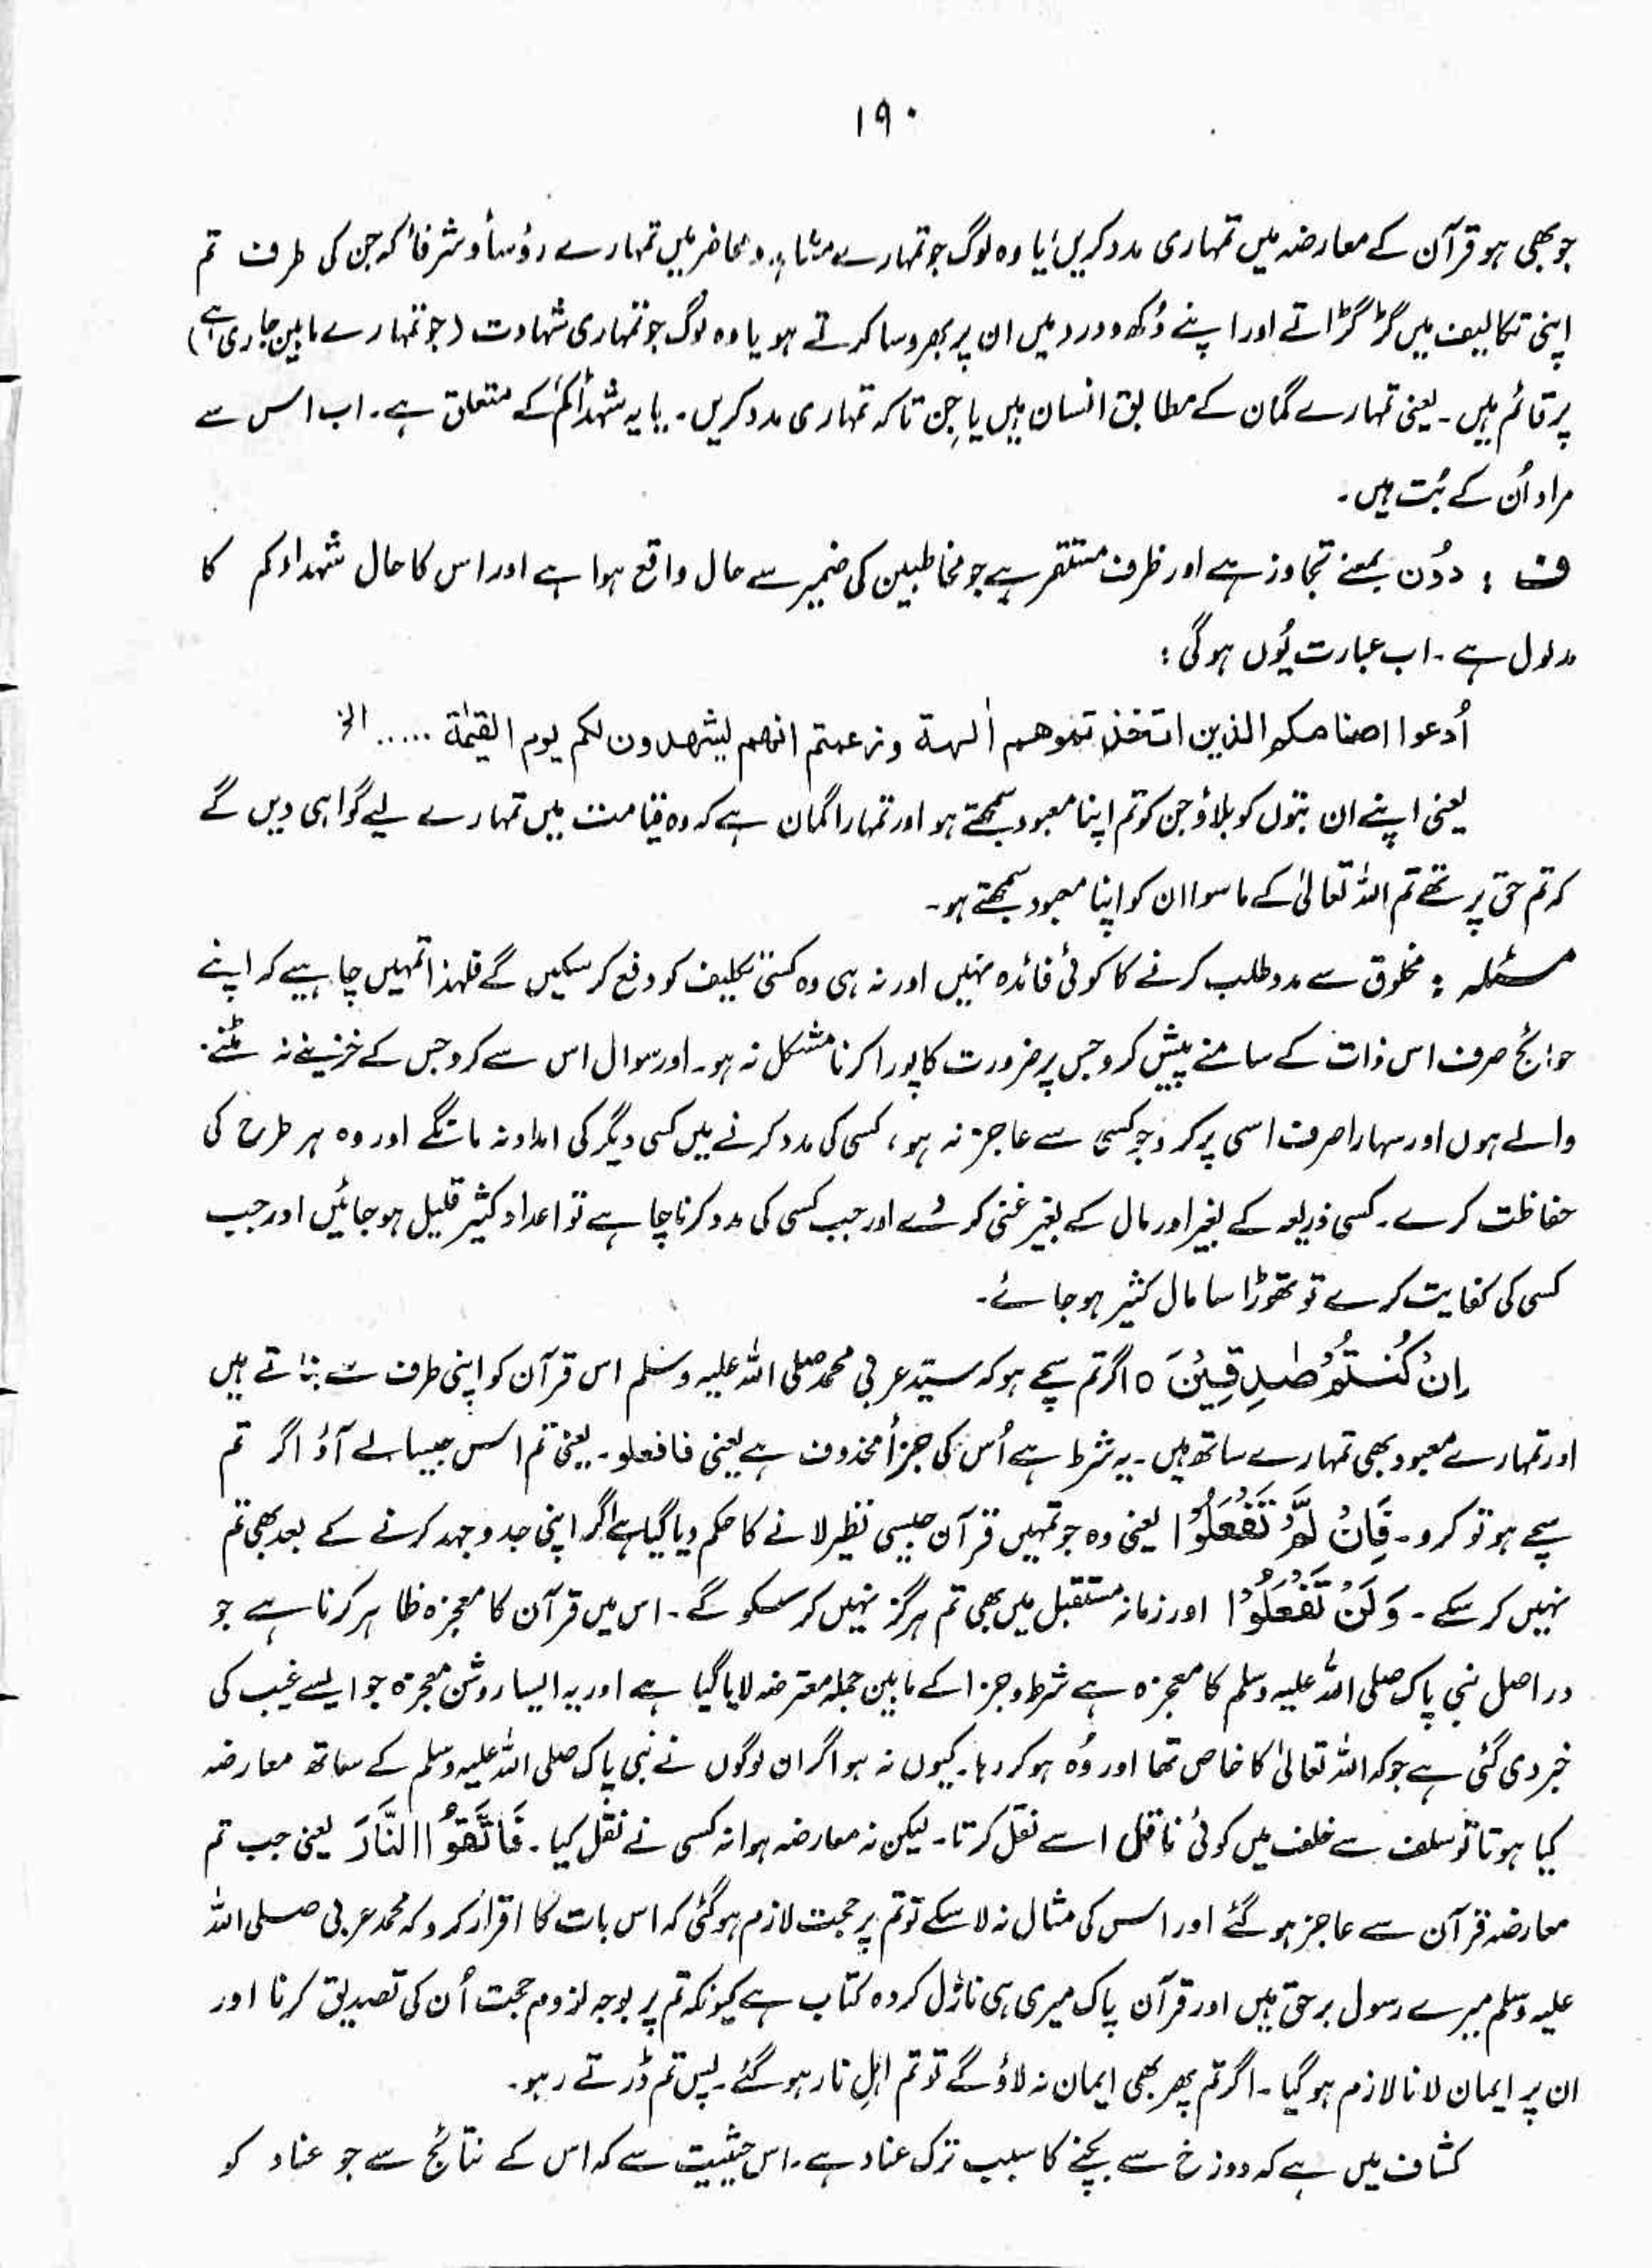 ۱۹۰
جو بھی ہو قرآن کے معارضہ میں تمہاری مدد کریں یا وہ لوگ جو تمہارے مشاہد و محاضر ہیں تمہارے رؤسأ و شرفأ کہ جن کی طرف تم
اپنی تکالیف میں گڑگڑاتے اور اپنے دُکھ و درد میں ان پر بھروسا کرتے ہو یا وہ لوگ جو تمہاری شہادت (جو تمہارے مابین جاری ہے)
پر قائم ہیں۔ یعنی تمہارے گمان کے مطابق انسان ہیں یا جِن تاکہ تمہاری مدد کریں۔ یا یہ شہدأکم کے متعلق ہے۔ اب اس سے
مراد اُن کے بُت ہیں۔
ف : دُوْن بمعنے تجاوز ہے اور ظرف مستقر ہے جو مخاطبین کی ضمیر سے حال واقع ہوا ہے اور اس کا حال شہداؤکم کا
مدلول ہے۔ اب عبارت یُوں ہوگی :
اُدعوا اصنامکم الذین اتخذتموھم اٰلہۃ وزعمتم انھم لیشھدون لکم یوم القیٰمۃ ..... الخ
یعنی اپنے ان بتوں کو بلاؤ جن کو تم اپنا معبود سمجھتے ہو اور تمہارا گمان ہے کہ وہ قیامت میں تمہارے لیے گواہی دیں گے
کہ تم حق پر تھے تم اللہ تعالیٰ کے ماسوا ان کو اپنا معبود سمجھتے ہو۔
مسئلہ : مخلوق سے مدد طلب کرنے کا کوئی فائدہ نہیں اور نہ ہی وہ کسی تکلیف کو دفع کر سکیں گے فلہٰذا تمہیں چاہیے کہ اپنے
حوائج صرف اس ذات کے سامنے پیش کرو جس پر ضرورت کا پورا کرنا مشکل نہ ہو۔ اور سوال اس سے کرو جس کے خزینے نہ مٹنے
والے ہوں اور سہارا صرف اسی پر کرو جو کسی سے عاجز نہ ہو، کسی کی مدد کرنے میں کسی دیگر کی امداد نہ مانگے اور وہ ہر طرح کی
حفاظت کرے۔ کسی ذریعہ کے بغیر اور مال کے بغیر غنی کر دے اور جب کسی کی مدد کرنا چاہے تو اعداد کثیر قلیل ہو جائیں اور جب
کسی کی کفایت کرے تو تھوڑا سا مال کثیر ہو جائے۔
اِنْ کُنْتُمْ صٰدِقِیْنَ ہ اگر تم سچے ہو کہ سیّد عربی محمد صلی اللہ علیہ وسلم اس قرآن کو اپنی طرف سے بناتے ہیں
اور تمہارے معبود بھی تمہارے ساتھ ہیں۔ یہ شرط ہے اُس کی جزأ محذوف ہے یعنی فافعلو۔ یعنی تم اس جیسا لے آؤ اگر تم
سچے ہو تو کرو۔ فَاِنْ لَّمْ تَفْعَلُوْا یعنی وہ جو تمہیں قرآن جیسی نظیر لانے کا حکم دیا گیا ہے اگر اپنی جدوجہد کرنے کے بعد بھی تم
نہیں کر سکے۔ وَلَنْ تَفْعَلُوْا اور زمانہ مستقبل میں بھی تم ہرگز نہیں کر سکو گے۔ اس میں قرآن کا معجزہ ظاہر کرنا ہے جو
دراصل نبی پاک صلی اللہ علیہ وسلم کا معجزہ ہے شرط و جزا کے مابین جملہ معترضہ لایا گیا ہے اور یہ ایسا روشن معجزہ جو ایسے غیب کی
خبر دی گئی ہے جو کہ اللہ تعالیٰ کا خاص تھا اور وُہ ہو کر رہا۔ کیوں نہ ہو اگر ان لوگوں نے نبی پاک صلی اللہ علیہ وسلم کے ساتھ معارضہ
کیا ہوتا تو سلف سے خلف میں کوئی ناقل اسے نقل کرتا۔ لیکن نہ معارضہ ہوا نہ کسی نے نقل کیا۔ فَاتَّقُوا النَّارَ یعنی جب تم
معارضہ قرآن سے عاجز ہو گئے اور اس کی مثال نہ لا سکے تو تم پر حجت لازم ہو گئی کہ اس بات کا اقرار کرو کہ محمد عربی صلی اللہ
علیہ وسلم میرے رسول برحق ہیں اور قرآن پاک میری ہی نازل کردہ کتاب ہے کیونکہ تم پر بوجہ لزوم حجت اُن کی تصدیق کرنا اور
ان پر ایمان لانا لازم ہو گیا۔ اگر تم پھر بھی ایمان نہ لاؤ گے تو تم اہلِ نار ہو گئے۔ پس تم ڈرتے رہو۔
کشاف میں ہے کہ دوزخ سے بچنے کا سبب ترک عناد ہے۔ اس حیثیت سے کہ اس کے نتائج سے جو عناد کو